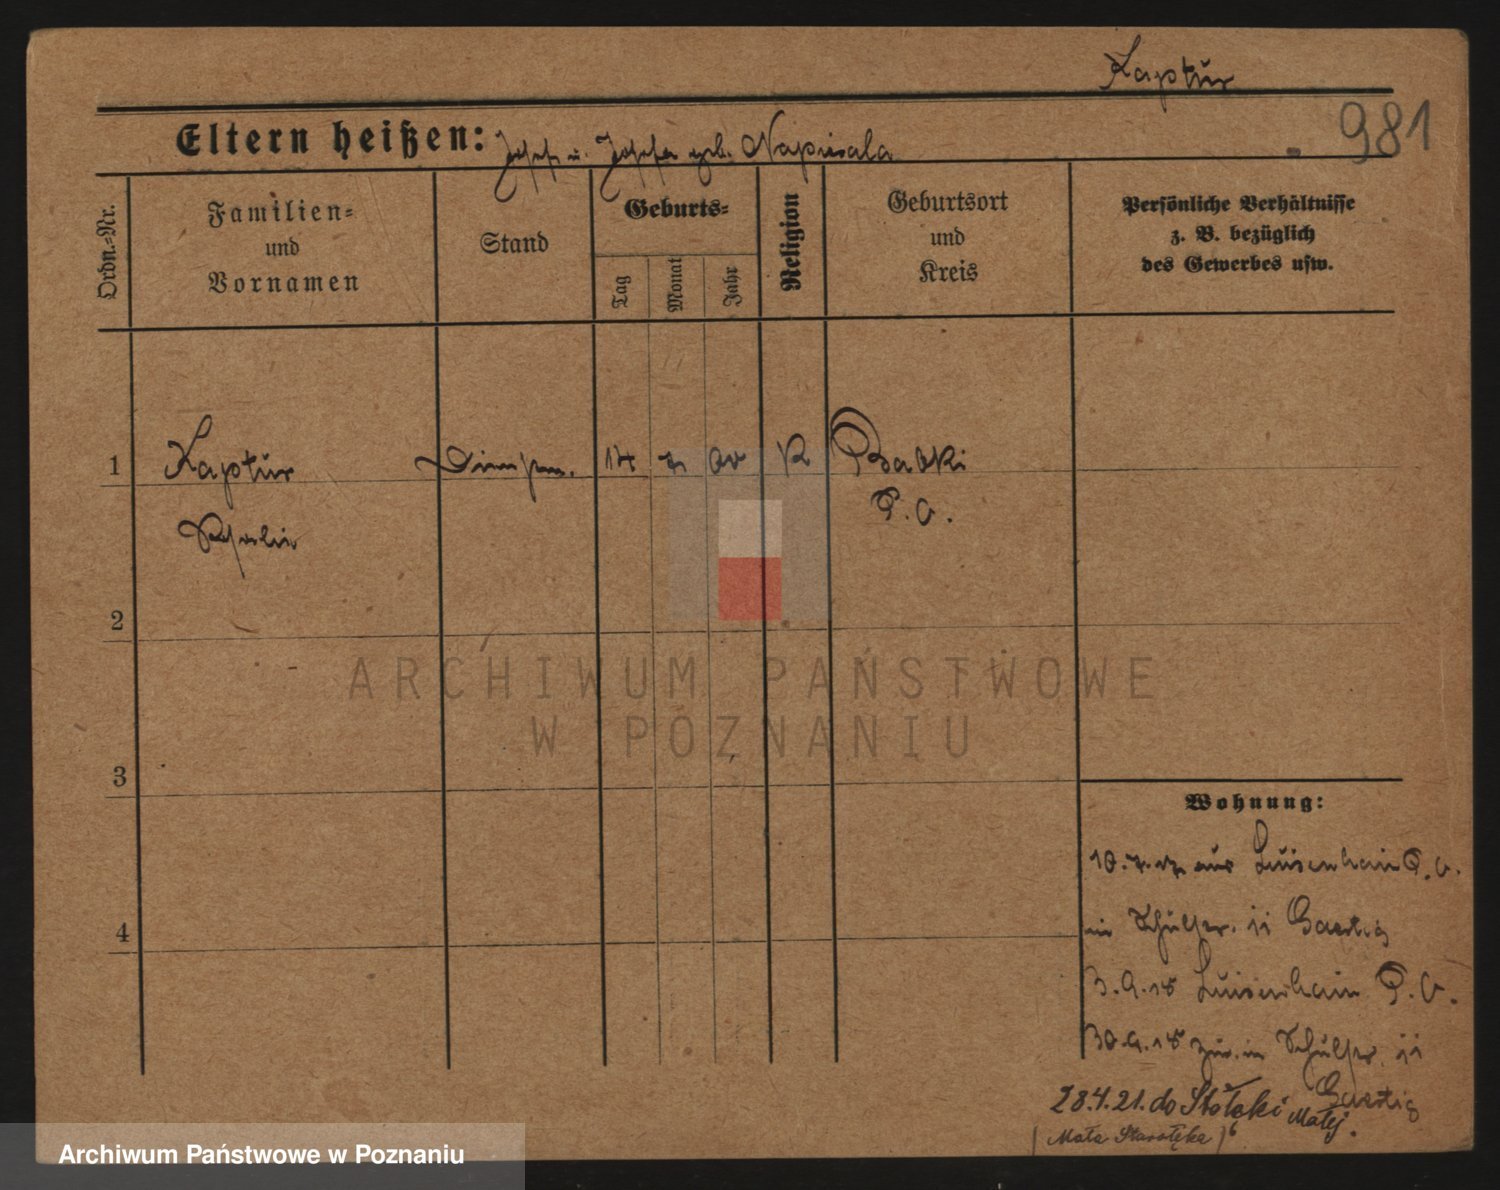 Kaptur
981
Eltern heißen: Josef u. Josefa geb. Napierala
Ordn.-Nr.
Familien-
und
Vornamen
Stand
Geburts-
Tag
Monat
Jahr
Religion
Geburtsort
und
Kreis
Persönliche Verhältnisse
z. B. bezüglich
des Gewerbes usw.
1 Kaptur 14 7 00 K Babki
P. O.
2
ARCHIWUM PAŃSTWOWE
W POZNANIU
3
Wohnung:
10.7.17 aus Luisenhain P. O.
in
4
3.9.18 Luisenhain P. O.
30.9.18 in
28.4.21. do Małej.
(Mała Starołęka) 6
Archiwum Państwowe w Poznaniu